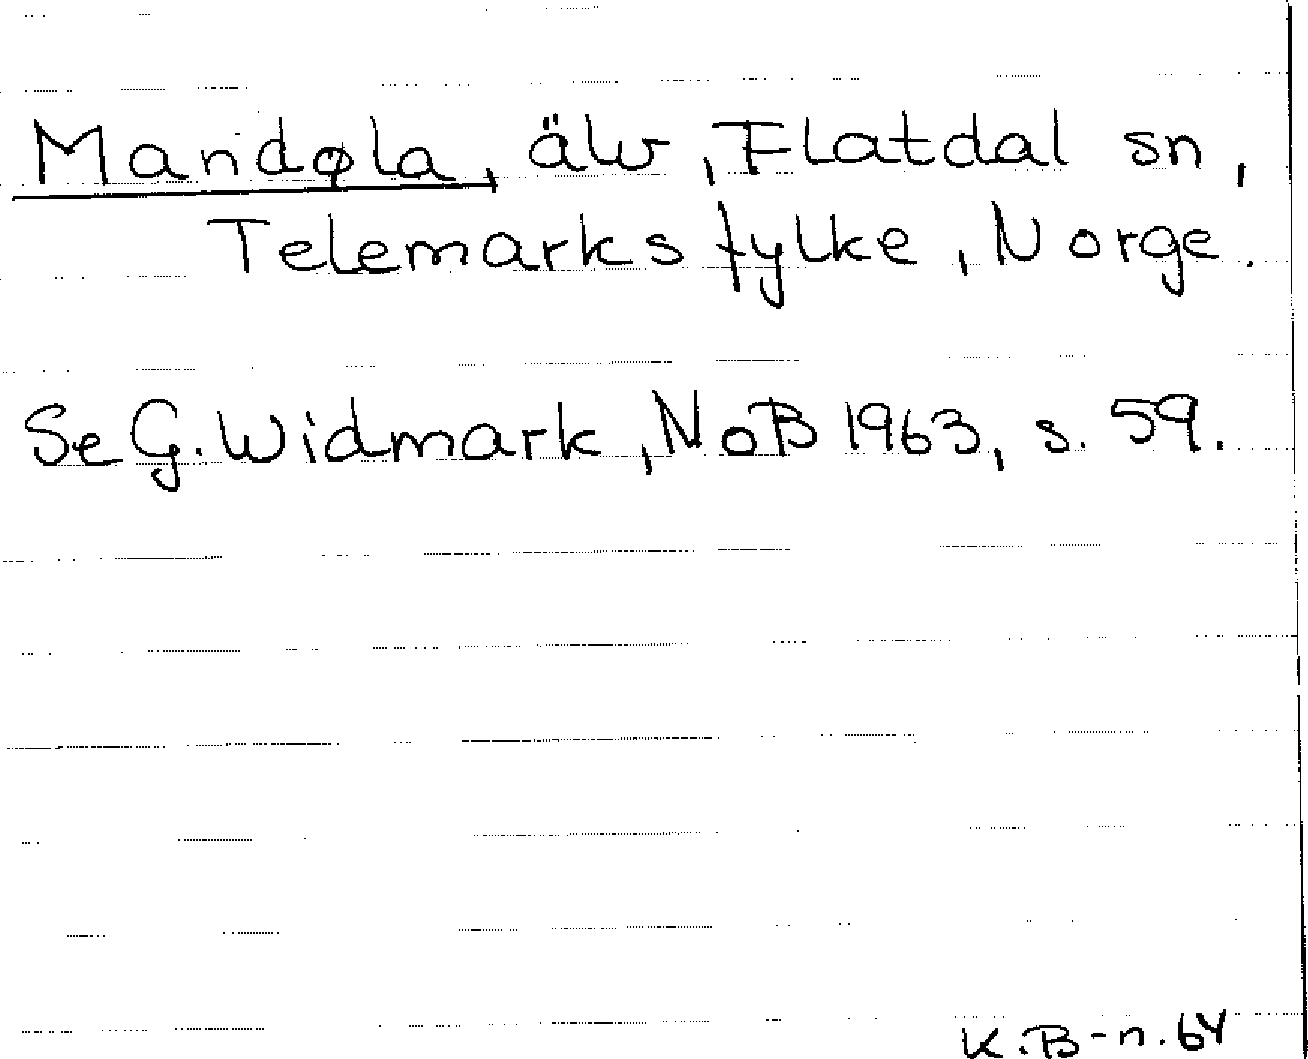 Mandøla, älv, Flatdal sn,
Telemarks fylke, Norge.
Se G. Widmark, NoB 1963, s. 59.
K.B-n. 64